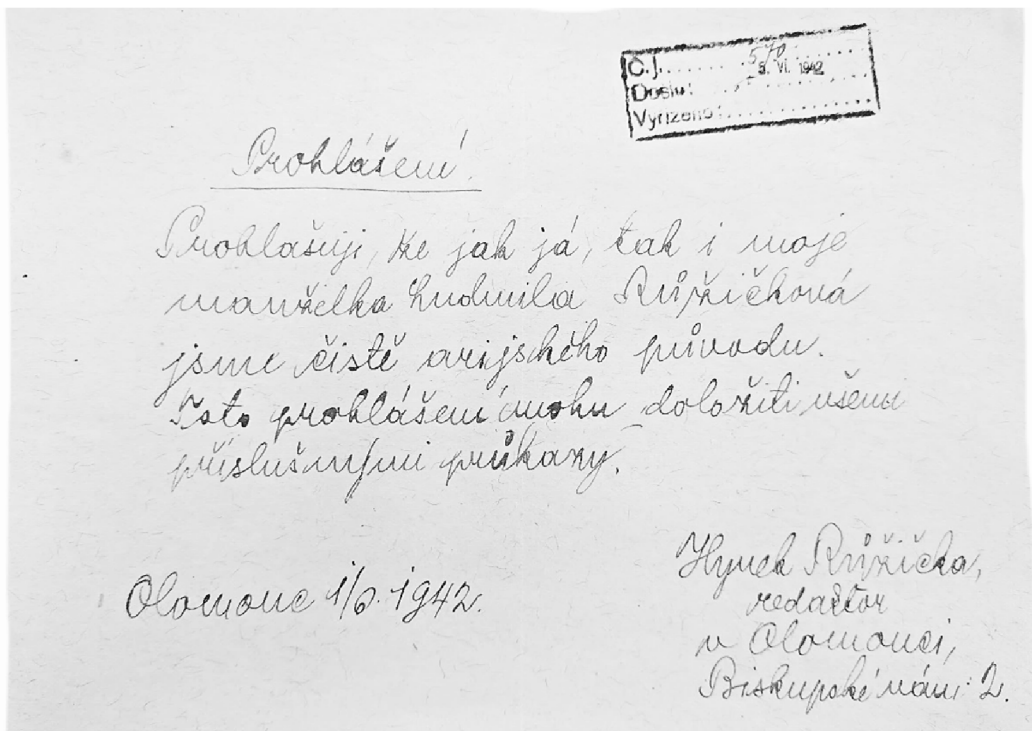 Č.j. 570
Došlo: 5. VI. 1942
Vyřízeno:
Prohlášení.
Prohlašuji, že jak já, tak i moje
manželka Ludmila Růžičková
jsme čistě arijského původu.
Toto prohlášení mohu doložiti všemi
příslušnými průkazy.
Olomouc 1/6. 1942.
Hynek Růžička,
redaktor
v Olomouci,
Biskupské nám. 2.